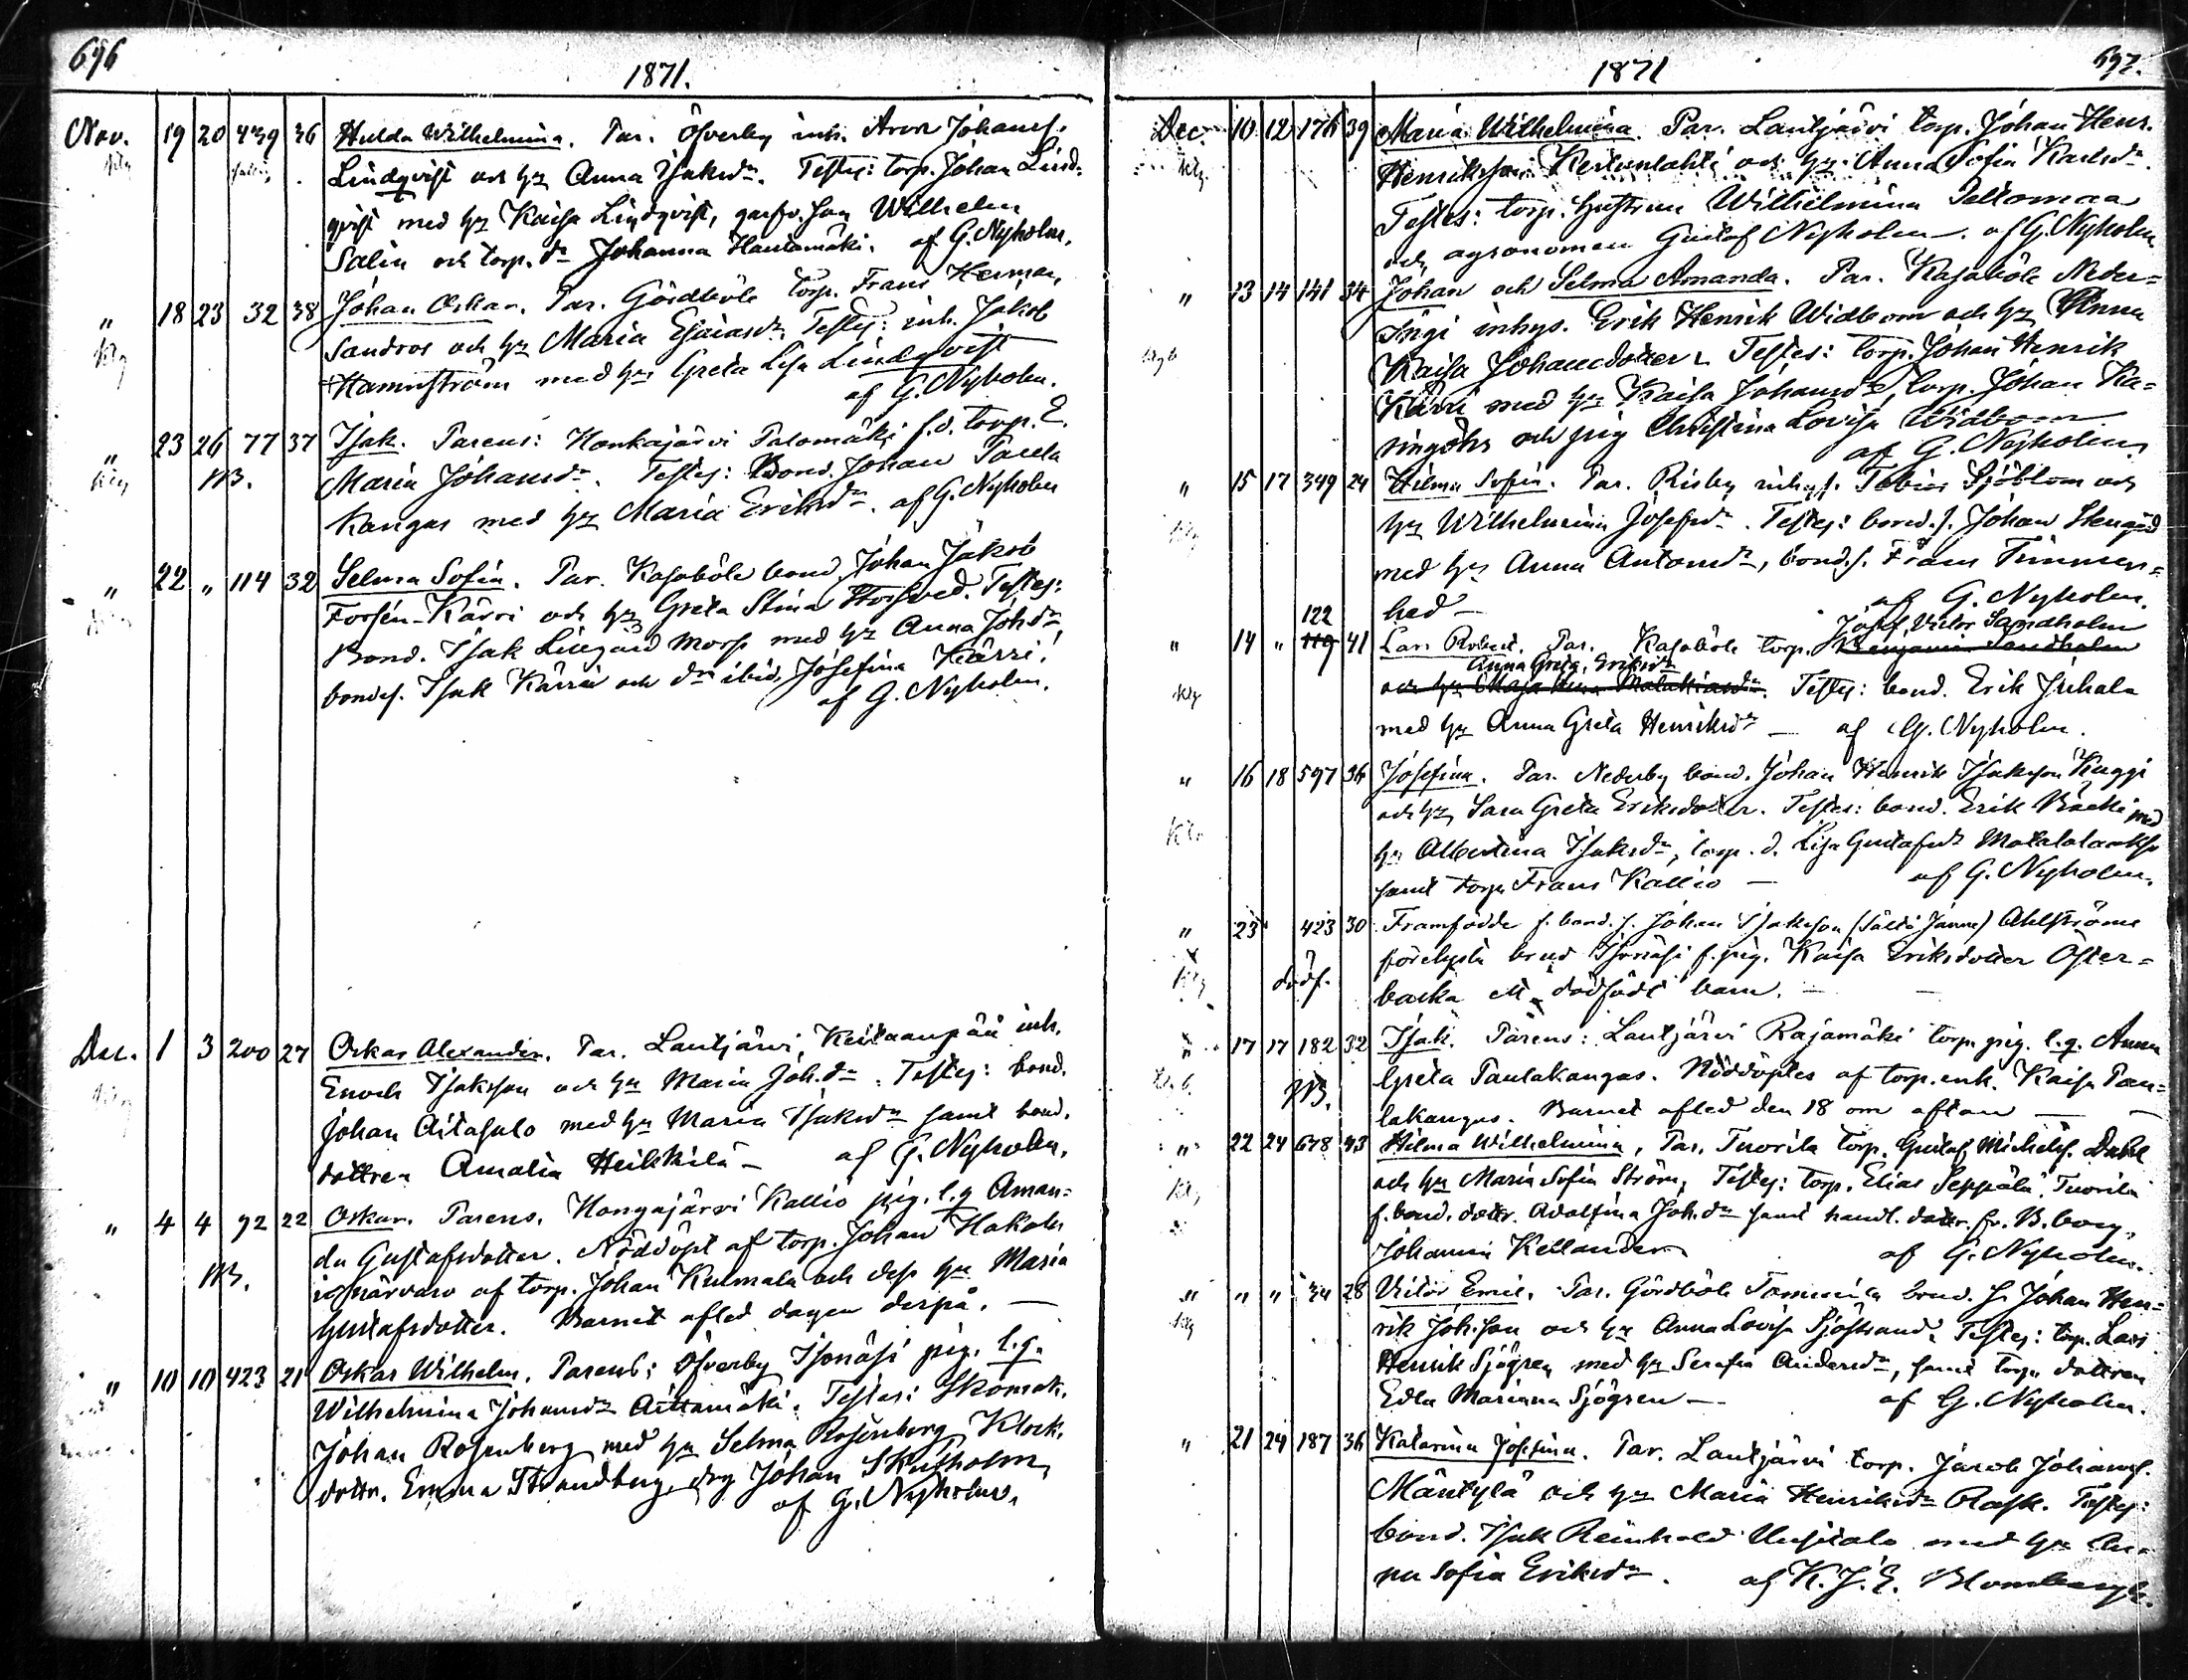 696
1871.
Nov. 19 20 439 36 Hulda Wilhelmina. Par. Öfverby inh. Aron Johansf.
Lindqvist och hu Anna Isaksdr. Testes: torp. Johan Lind-
qvist med hu Kaisa Lindqvist, garfv. Wilhelm
Salin och torp. dr Johanna Hautamäki. af G. Nyholm.
" 18 23 32 38 Johan Oskar. Par. Gördböle torp. Frans Herman
Sandros och hu Maria Esaiasdr. Testes: inh. Jakob
Hammström med hu Greta Lisa Lindqvist
af G. Nyholm.
" 23 26 77 37 Isak. Parens: Honkajärvi Palomäki f.d. torp. E.
NB. Maria Johansdr. Testes: Bond. Johan Paula
Kangas med hu Maria Eriksdr. af G. Nyholm
" 22 " 114 32 Selma Sofia. Par. Kasaböle bond. Johan Jakob
Forsén-Kärri och hu Greta Stina Storsved. Testes:
Bond. Isak Lillgård Mors med hu Anna Johdr
bondes. Isak Kärri och dr ibid. Josefina Kärri.
af G. Nyholm.
Dec. 1 3 200 27 Oskar Alexander. Par. Lautjärvi, Keitaanpää inh.
Enoch Isaksson och hu Maria Joh.dr. Testes: bond.
Johan Aitasalo med hu Maria Isaksdr samt bond.
dottren Amalia Heikkilä — af G. Nyholm.
" 4 4 92 22 Oskar. Parens. Hongajärvi Kallio pig. l.q. Aman-
da Gustafsdotter. Nöddöpt af torp. Johan Hakola
NB. i närvaro af torp. Johan Kulmala och dess hu Maria
Gustafsdotter. Barnet afled dagen derpå. —
" 10 10 423 21 Oskar Wilhelm. Parens: Öfverby Isonäsi pig. l.q.
Wilhelmina Johansdr Aittamäki. Testes: Skomak.
Johan Rosenberg med hu Selma Rosenberg, Klock.
dottr. Emma Strandberg, drg Johan Skutholm,
af G. Nyholm.
1871
697.
Dec. 10 12 176 39 Maria Wilhelmina. Par. Lautjärvi torp. Johan Henr.
Henriksson Keitanlahti och hu Anna Sofia Karlsdr.
Testes: torp. hustrun Wilhelmina Peltomaa
och agronomen Gustaf Nyholm —. af G. Nyholm
" 13 14 141 34 Johan och Selma Amanda. Par. Kasaböle Neder-
Ingi inhys. Erik Henrik Widbom och hu Anna
Kaisa Johansdotter. Testes: torp. Johan Henrik
Kärri med hu Kaisa Johansdr, torp. Johan Ka-
ringöhr och pig Christina Lovisa Widbom
af G. Nyholm.
" 15 17 349 24 Hilma Sofia. Par. Risby inhys. Tobias Sjöblom och
hu Wilhelmina Josefsdr. Testes: bond.s. Johan Stengård
med hu Anna Antonsdr, bond.s. Frans Timmer-
hed — af G. Nyholm.
122 Josef Victor Sandholm
" 14 " 119 41 Lars Robert. Par. Kasaböle torp. Benjamin Sandholm
Anna Greta Eriksdr
och hu Maja Stina Malakiasdr. Testes: bond. Erik Juhala
med hu Anna Greta Henriksdr — af G. Nyholm.
" 16 18 597 36 Josefina. Par. Nederby bond. Johan Henrik Isaksson Kuggi
och hu Sara Greta Eriksdotter. Testes: bond. Erik Backi med
hu Albertina Isaksdr, torp. d. Lisa Gustafsdr
samt torp. Frans Kallio — af G. Nyholm.
" 23 423 30 Framfödde f. bond. s. Johan Isaksson (Sälti Janne) Ahlströms
förelysta brud Isonäsi f. pig. Kaisa Eriksdotter Öster-
dödf. backa ett dödfödt barn. —
" 17 17 182 32 Isak. Parens: Lautjärvi Rajamäki torp. pig. l.q. Anna
NB. Greta Paulakangas. Nöddöptes af torp. enk. Kaisa Pau-
lakangas. Barnet afled den 18 om aftan —
" 22 24 678 43 Hilma Wilhelmina, Par. Tuorila torp. Gustaf Michelsf. Dahl
och hu Maria Sofia Ström, Testes: torp. Elias Seppälä, Tuorila
f. bond. dottr. Adolfina Joh.dr samt handl. dottr. fr. B.borg,
Johanna Kellander af G. Nyholm.
" " " 34 28 Victor Emil. Par. Gördböle Tommila bond. s. Johan Hen-
rik Joh.son och hu Anna Lovisa Sjöstrand. Testes: torp. Lars
Henrik Sjögren med hu Serafia Andersdr, samt torp. dottren
Edla Marianna Sjögren — af G. Nyholm.
" 21 24 187 36 Katarina Josefina. Par. Lautjärvi torp. Jacob Johansf.
Mäntylä och hu Maria Henriksdr Rask. Testes:
bond. Isak Reinhold Uusitalo med hu An-
na Sofia Eriksdr. af K. J. E. Blomberg.